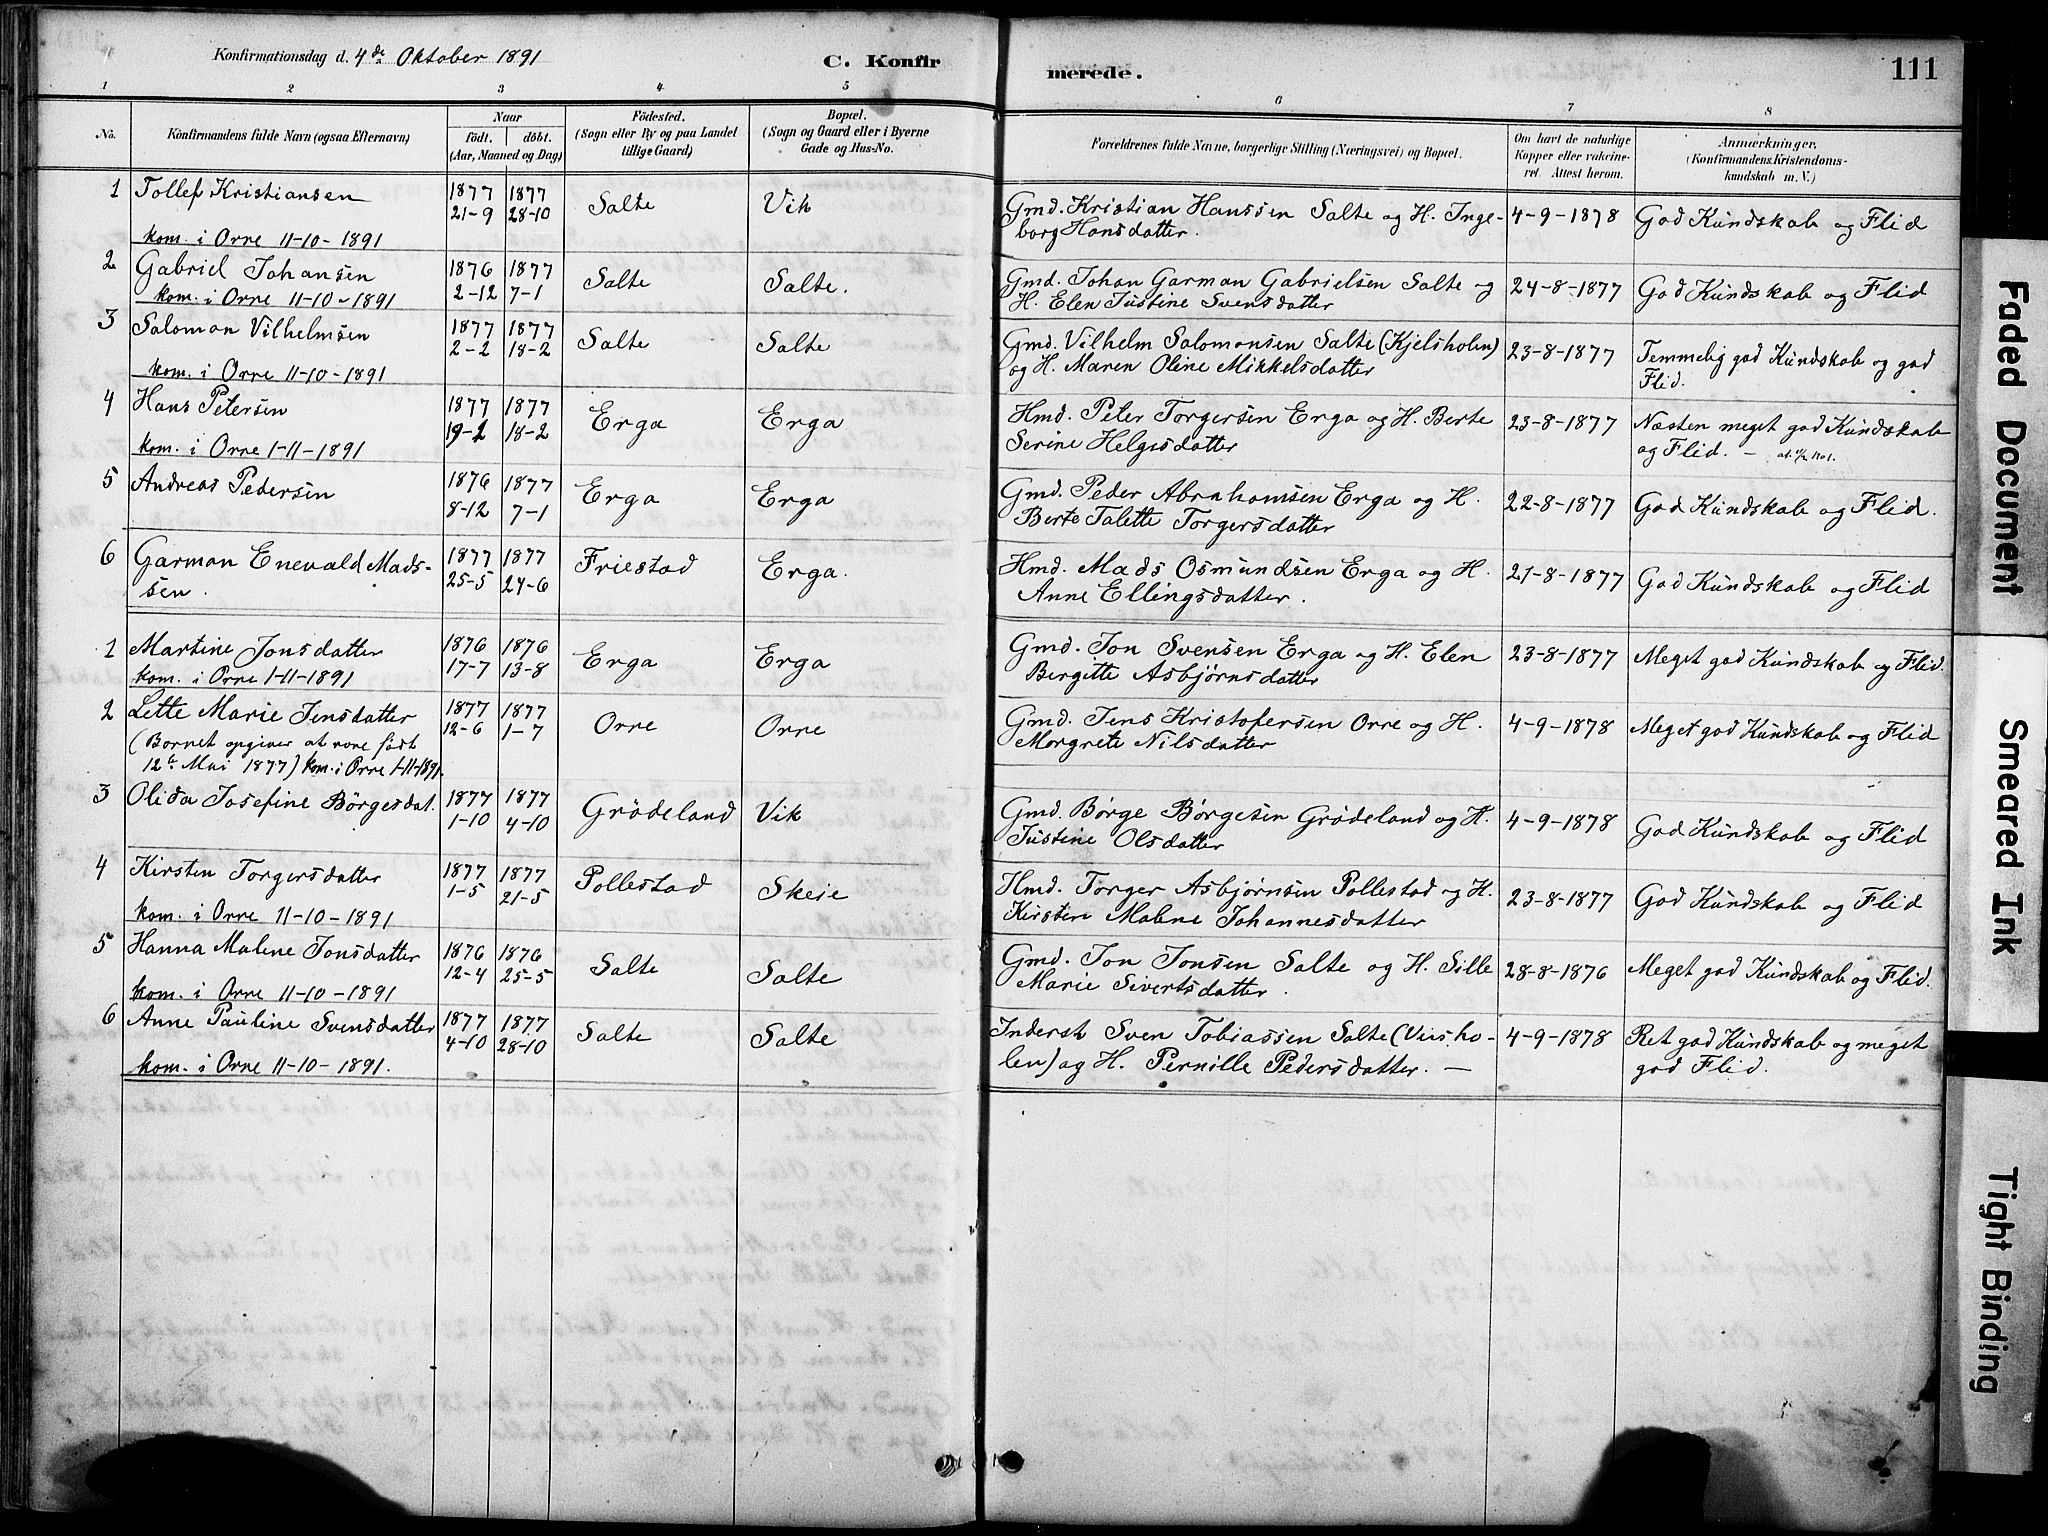 Konfirmationsdag d. 4de Oktober 1891
C. Konfirmerede.
111
1 2 3 4 5 6 7 8
No.
Konfirmandens fulde Navn (ogsaa Efternavn)
Naar födt. döbt. (Aar, Maaned og Dag)
Födested. (Sogn eller By og paa Landet tillige Gaard)
Bopæl. (Sogn og Gaard eller i Byerne Gade og Hus-No.
Forældrenes fulde Navne, borgerlige Stilling (Næringsvei) og Bopæl.
Om havt de naturlige Kopper eller vakcineret. Attest herom.
Anmærkninger. (Konfirmandens Kristendomskundskab m. V.)
1 Tollef Kristiansen 1877 1877 Salte Vik Gmd. Kristian Hanssen Salte og H. Inge- 4-9-1878 God Kundskab og Flid
21-9 28-10 borg Hansdatter.
kom. i Orre 11-10-1891
2 Gabriel Johansen 1876 1877 Salte Salte. Gmd. Johan Garman Gabrielsen Salte og 24-8-1877 God Kundskab og Flid
kom. i Orre 11-10-1891 2-12 7-1 H. Elen Justine Svensdatter
3 Salomon Vilhelmsen 1877 1877 Salte Salte Gmd. Vilhelm Salomonsen Salte (Kjelsholen) 23-8-1877 Temmelig god Kundskab og god
2-2 18-2 og H. Maren Oline Mikkelsdatter Flid.
kom. i Orre 11-10-1891
4 Hans Petersen 1877 1877 Erga Erga Hmd. Peter Torgersen Erga og H. Berte 23-8-1877 Næsten meget god Kundskab
kom. i Orre 1-11-1891 19-2 18-2 Serine Helgesdatter og Flid. —
5 Andreas Pedersen 1876 1877 Erga Erga Gmd. Peder Abrahamsen Erga og H. 22-8-1877 God Kundskab og Flid.
8-12 7-1 Berte Talette Torgersdatter
6 Garman Enevald Mads- 1877 1877 Friestad Erga. Hmd. Mads Osmundsen Erga og H. 21-8-1877 God Kundskab og Flid
sen. 25-5 24-6 Anne Ellingsdatter.
1 Martine Jonsdatter 1876 1876 Erga Erga Gmd. Jon Svensen Erga og H. Elen 23-8-1877 Meget god Kundskab og Flid.
kom. i Orre 1-11-1891 17-7 13-8 Bergitte Asbjørnsdatter
2 Lette Marie Jensdatter 1877 1877 Orre Orre Gmd. Jens Kristofersen Orre og H. 4-9-1878 Meget god Kundskab og Flid
(Barnet opgiver at være født 12-6 1-7 Margrete Nilsdatter
12te Mai 1877) kom. i Orre 1-11-1891.
3 Olida Josefine Børgesdat. 1877 1877 Grødeland Vik Gmd. Børge Børgesen Grødeland og H. 4-9-1878 God Kundskab og Flid
1-10 4-10 Justine Olsdatter
4 Kirsten Torgersdatter 1877 1877 Pollestad Skeie Hmd. Torger Asbjørnsen Pollestad og H. 23-8-1877 God Kundskab og Flid
1-5 21-5 Kirsten Malene Johannesdatter
kom. i Orre 11-10-1891
5 Hanna Malene Jonsdatter 1876 1876 Salte Salte Gmd. Jon Jonsen Salte og H. Sille 28-8-1876 Meget god Kundskab og Flid.
12-4 25-5 Marie Sivertsdatter.
kom. i Orre 11-10-1891
6 Anne Pauline Svensdatter 1877 1877 Salte Salte Inderst Sven Tobiassen Salte (Virsho- 4-9-1878 Ret god Kundskab og meget
4-10 28-10 len) og H. Pernille Pedersdatter. — god Flid.
kom. i Orre 11-10-1891.
Faded Document
Smeared Ink
Tight Binding